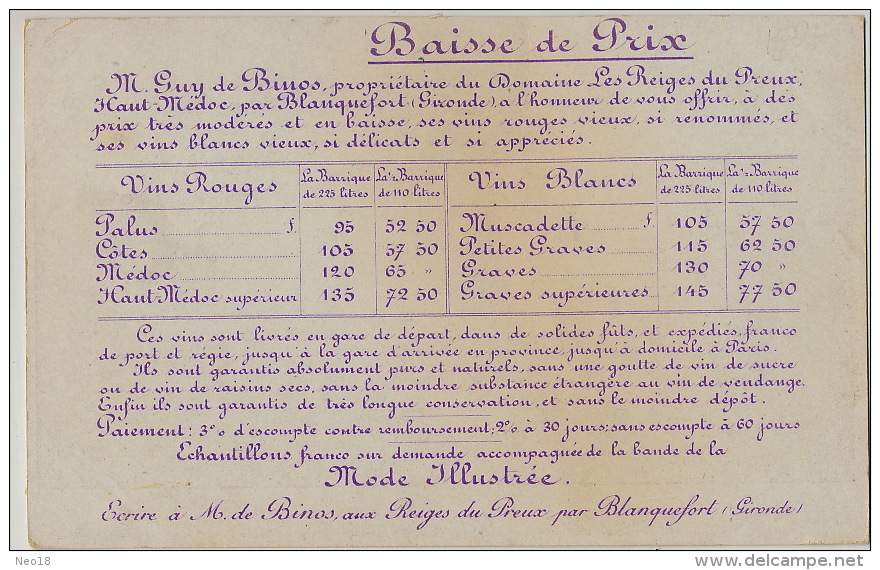 Baisse de Prix
M. Guy de Binos, propriétaire du Domaine Les Reiges du Preux,
Haut-Médoc, par Blanquefort (Gironde), a l'honneur de vous offrir, à des
prix très modérés et en baisse, ses vins rouges vieux, si renommés, et
ses vins blancs vieux, si délicats et si appréciés.
Vins Rouges La Barrique de 225 litres La ½ Barrique de 110 litres Vins Blancs La Barrique de 225 litres La ½ Barrique de 110 litres
Palus f. 95 52 50 Muscadette f. 105 57 50
Côtes 105 57 50 Petites Graves 115 62 50
Médoc 120 65 " Graves 130 70 "
Haut-Médoc supérieur 135 72 50 Graves supérieures 145 77 50
Ces vins sont livrés en gare de départ, dans de solides fûts, et expédiés, franco
de port et régie, jusqu'à la gare d'arrivée en province, jusqu'à domicile à Paris.
Ils sont garantis absolument purs et naturels, sans une goutte de vin de sucre
ou de vin de raisins secs, sans la moindre substance étrangère au vin de vendange.
Enfin ils sont garantis de très longue conservation, et sans le moindre dépôt.
Paiement: 3% d'escompte contre remboursement; 2% à 30 jours; sans escompte à 60 jours
Echantillons franco sur demande accompagnée de la bande de la
Mode Illustrée.
Ecrire à M. de Binos, aux Reiges du Preux par Blanquefort (Gironde)
Neo18
delcampe.net